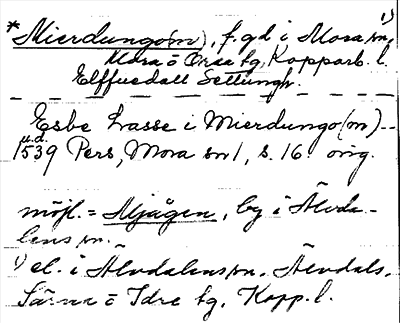 1)
*Mierdungo(n), f. gd i Mora sn,
Mora o Orsa tg, Kopparb. l.
Elffuedall Settungh.
Esbe Lasse i Mierdungo(m) --
u.d.
1539 Pers, Mora sn 1, s. 16. orig.
möjl. = Mjågen, by i Älvda-
lens sn.
1) el. i Älvdalens sn. Älvdals,
Särna o Idre tg, Kopp. l.